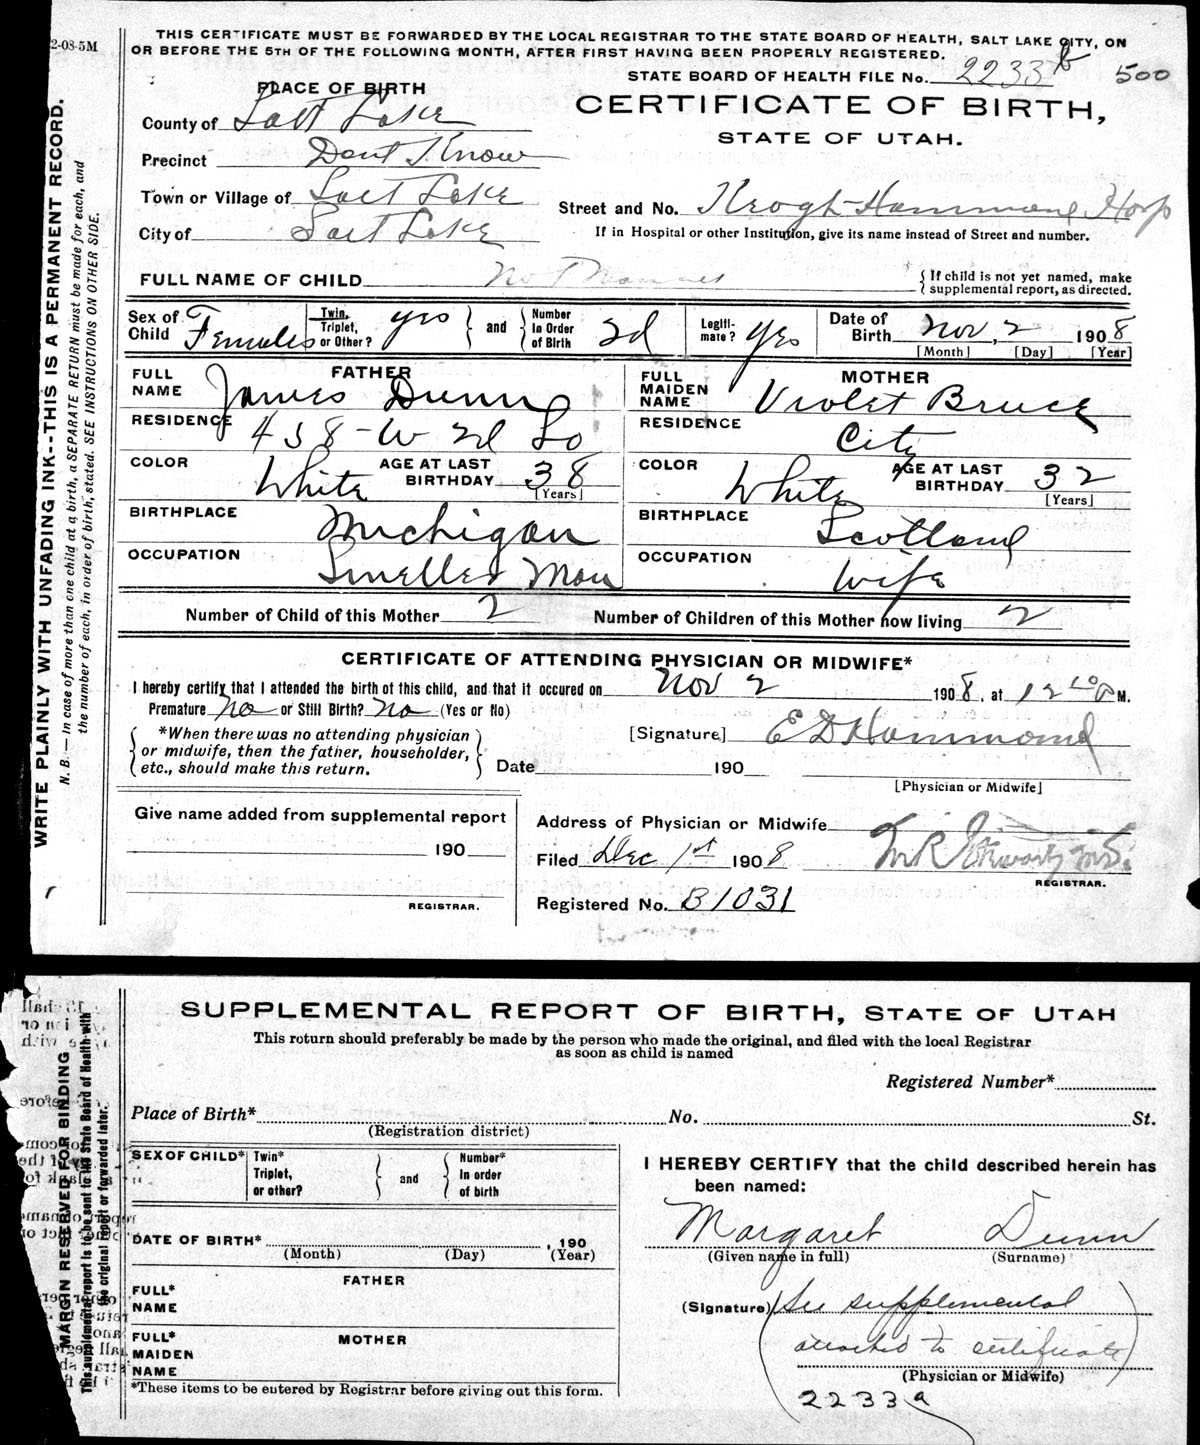 2-08-5M
THIS CERTIFICATE MUST BE FORWARDED BY THE LOCAL REGISTRAR TO THE STATE BOARD OF HEALTH, SALT LAKE CITY, ON
OR BEFORE THE 5TH OF THE FOLLOWING MONTH, AFTER FIRST HAVING BEEN PROPERLY REGISTERED.
STATE BOARD OF HEALTH FILE No. 2233 b 500
PLACE OF BIRTH
CERTIFICATE OF BIRTH,
STATE OF UTAH.
County of Salt Lake
Precinct Dont Know
Town or Village of Salt Lake
Street and No. Keogh-Hammond Hosp
City of Salt Lake
If in Hospital or other Institution, give its name instead of Street and number.
FULL NAME OF CHILD
{ If child is not yet named, make
supplemental report, as directed.
Sex of Child Females
Twin, Triplet, or Other? yes
and
Number In Order of Birth 2d
Legiti-mate? yes
Date of Birth Nov, 2 1908
[Month] [Day] [Year]
FATHER
FULL NAME James Dunn
RESIDENCE 438-W 2d So
COLOR White
AGE AT LAST BIRTHDAY 38
[Years]
BIRTHPLACE Michigan
OCCUPATION Smelter Man
MOTHER
FULL MAIDEN NAME Violet Bruce
RESIDENCE City
COLOR White
AGE AT LAST BIRTHDAY 32
[Years]
BIRTHPLACE Scotland
OCCUPATION Wife
Number of Child of this Mother 2
Number of Children of this Mother now living 2
CERTIFICATE OF ATTENDING PHYSICIAN OR MIDWIFE*
I hereby certify that I attended the birth ot this child, and that it occured on Nov 2 1908, at 12 M.
Premature no or Still Birth? no (Yes or No)
*When there was no attending physician
or midwife, then the father, householder,
etc., should make this return.
[Signature] E D Hammond
Date 190
[Physician or Midwife]
Give name added from supplemental report
190
REGISTRAR.
Address of Physician or Midwife
Filed Dec 1st 1908
REGISTRAR.
Registered No. B1031
WRITE PLAINLY WITH UNFADING INK--THIS IS A PERMANENT RECORD.
N. B.—In case of more than one child at a birth, a SEPARATE RETURN must be made for each, and
the number of each, in order of birth, stated. SEE INSTRUCTIONS ON OTHER SIDE.
SUPPLEMENTAL REPORT OF BIRTH, STATE OF UTAH
This return should preferably be made by the person who made the original, and filed with the local Registrar
as soon as child is named
Registered Number*
Place of Birth* No. St.
(Registration district)
SEX OF CHILD*
Twin* Triplet, or other?
and
Number* In order of birth
DATE OF BIRTH* , 190
(Month) (Day) (Year)
FATHER
FULL* NAME
MOTHER
FULL* MAIDEN NAME
*These items to be entered by Registrar before giving out this form.
I HEREBY CERTIFY that the child described herein has
been named:
Margaret Dunn
(Given name in full) (Surname)
(Signature) (See supplemental
attached to certificate)
(Physician or Midwife)
2233a
MARGIN RESERVED FOR BINDING
This supplemental report is to be sent to the State Board of Health with
the original report or forwarded later.